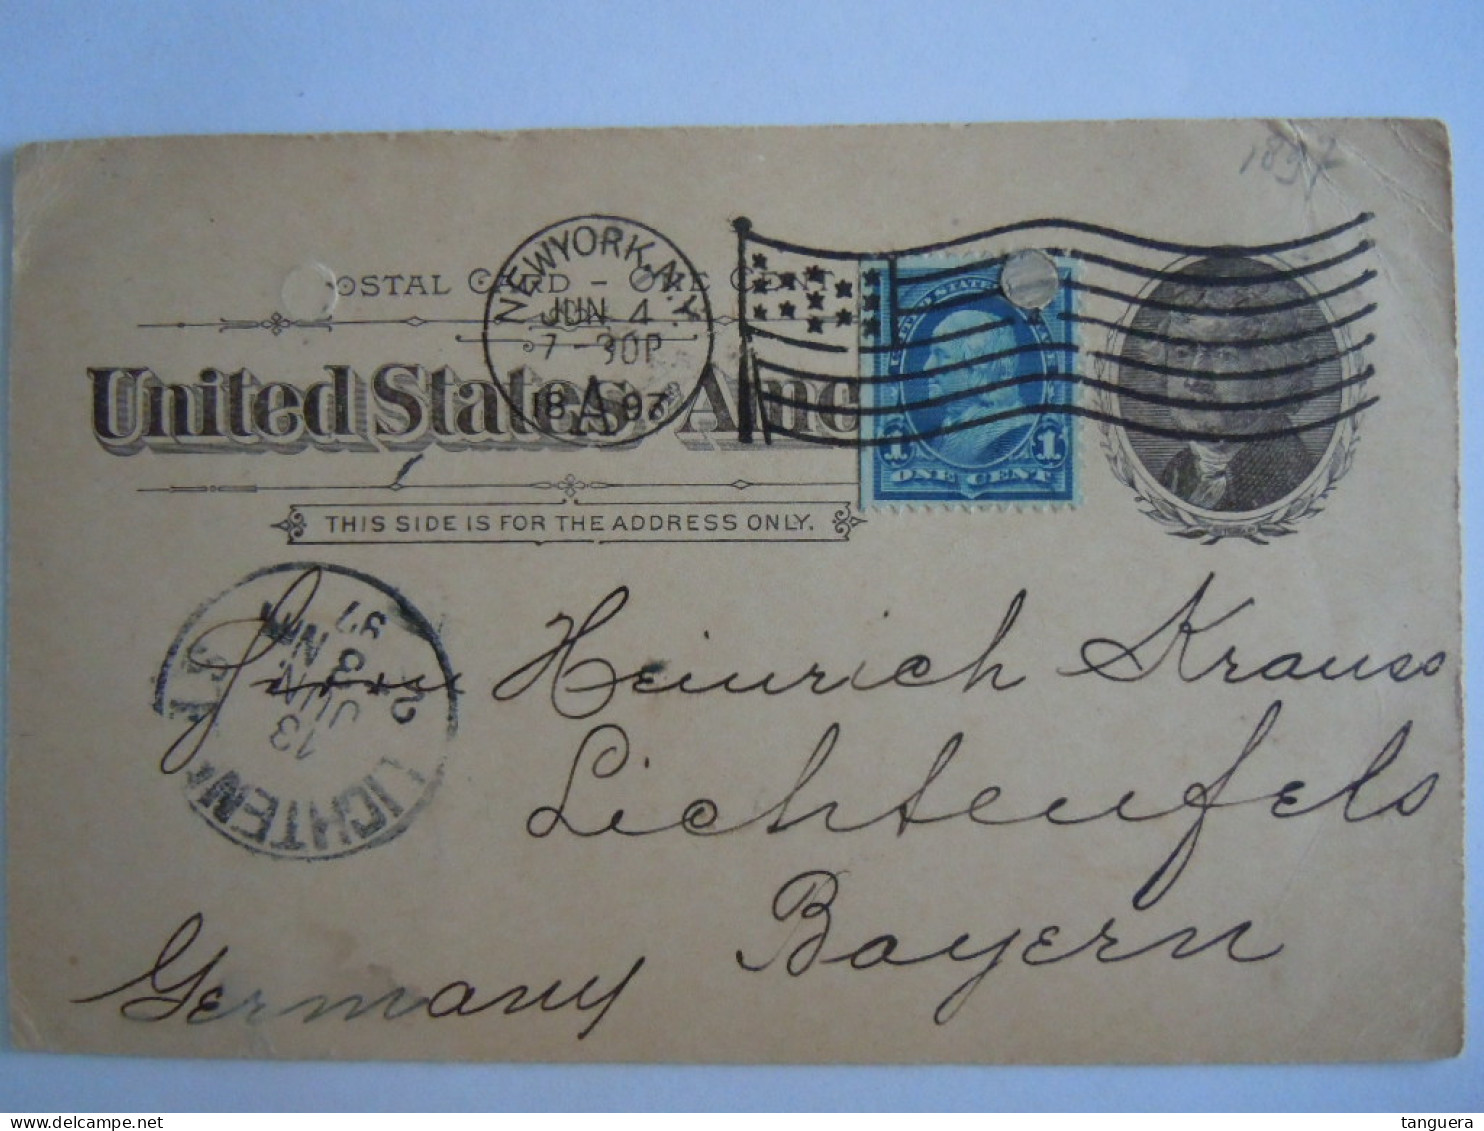 1897
POSTAL CARD – ONE CENT
NEW YORK, N.Y.
JUN 4
7 - 30P
A
1897
United States Ame
THIS SIDE IS FOR THE ADDRESS ONLY.
1 1
ONE CENT
JEFFERSON
LICHTENF
13
JUN
97
Herrn Heinrich Krauss
Lichtenfels
Bayern
Germany
delcampe.net
tanguera